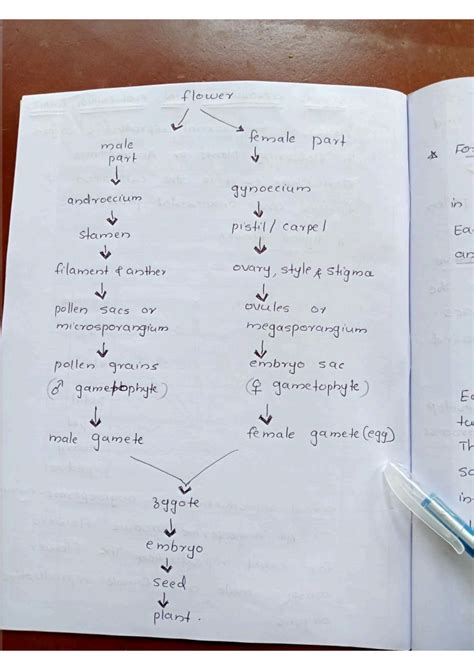 flower
male part
female part
androecium
gynoecium
stamen
pistil / carpel
filament & anther
ovary, style & stigma
pollen sacs or
microsporangium
ovules or
megasporangium
pollen grains
(♂ gametophyte)
embryo sac
(♀ gametophyte)
male gamete
female gamete (egg)
zygote
embryo
seed
plant.
Fo
in
Ea
an
Ea
Th
in